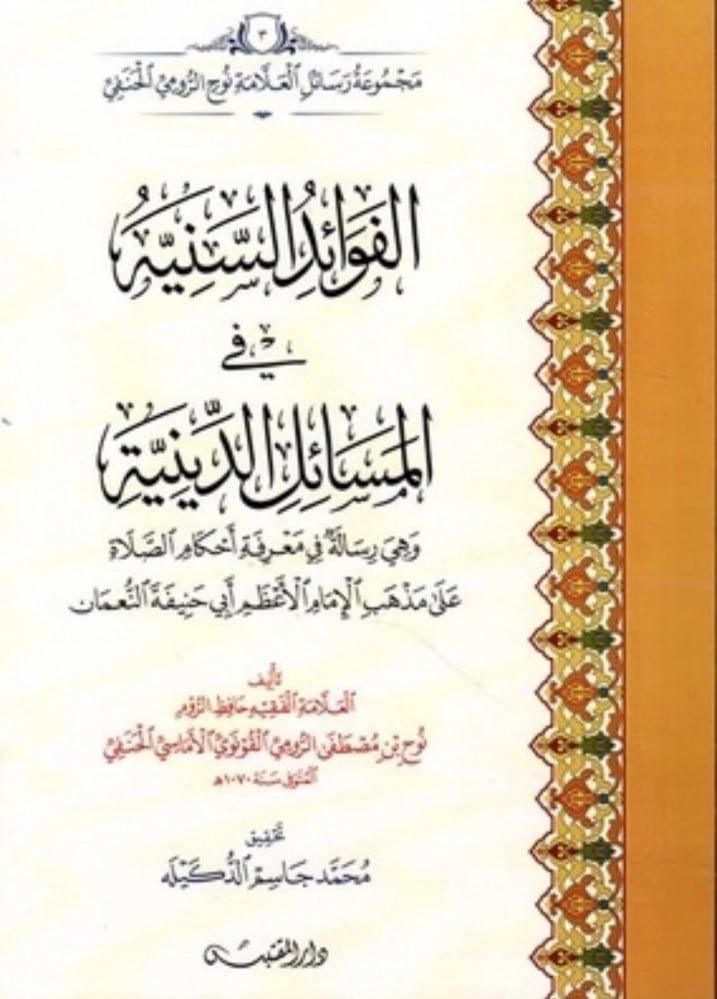 ٣
مَجْمُوعَةُ رَسَائِلِ الْعَلَّامَةِ نُوحٍ الرُّومِيِّ الْحَنَفِيِّ
الفَوَائِدُ السَّنِيَّهُ
فِي
المَسَائِلِ الدِّينِيَّةِ
وَهِيَ رِسَالَةٌ فِي مَعْرِفَةِ أَحْكَامِ الصَّلَاةِ
عَلَى مَذْهَبِ الْإِمَامِ الْأَعْظَمِ أَبِي حَنِيفَةَ النُّعْمَان
تَأْلِيف
الْعَلَّامَةِ الْفَقِيهِ حَافِظِ الرُّومِ
نُوحِ بْنِ مُصْطَفَى الرُّومِيِّ الْقُونَوِيِّ الْأَمَاسِيِّ الْحَنَفِيِّ
الْمُتَوَفَّى سَنَة ١٠٧٠هـ
تَحْقِيق
مُحَمَّد جَاسِم الدُّكَيْلَه
دار المقتبس